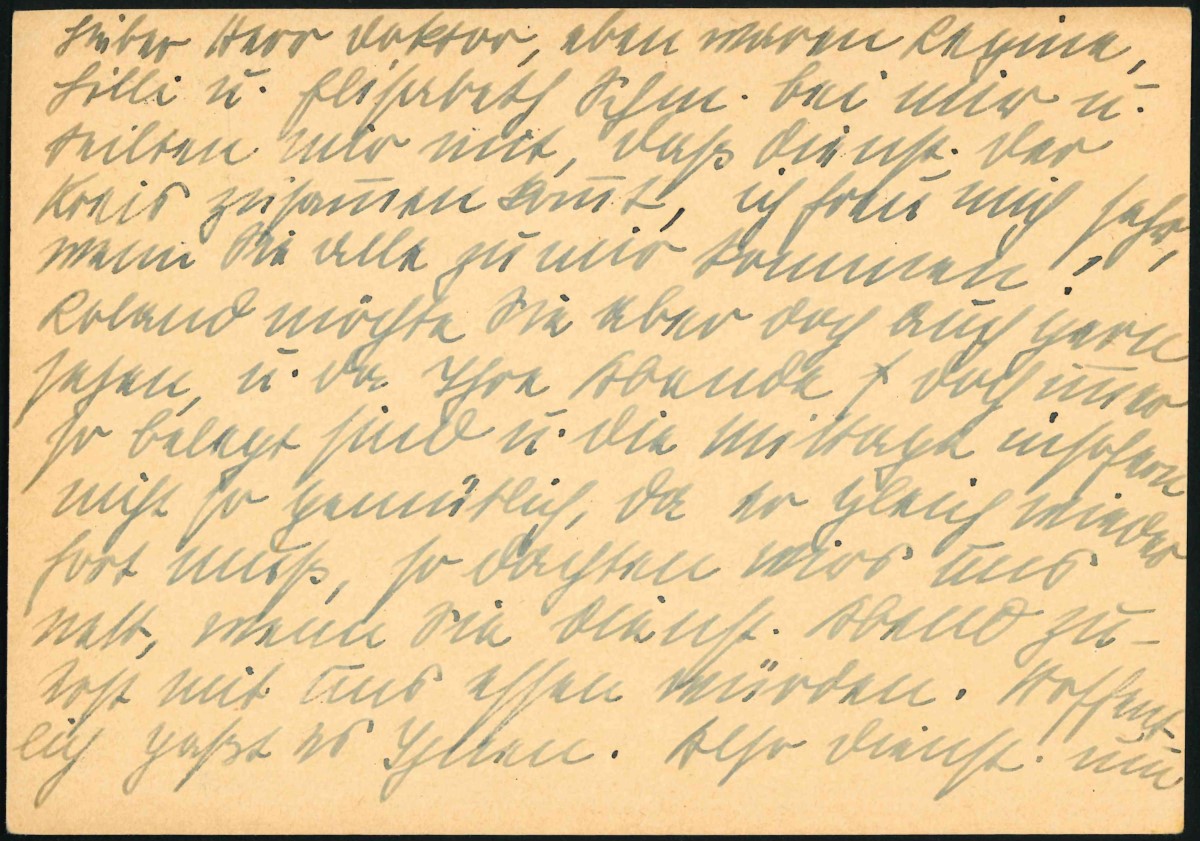 Lieber Herr Doktor, eben waren Regine,
Lilli u. Elisabeth Schm. bei mir u.
teilten mir mit, daß Dienst. der
Kreis zusam̅en kom̅t, ich freu mich sehr,
wenn Sie alle zu mir kommen!
Roland möchte Sie aber doch auch gern
sehen, u. da Ihre Abende doch im̅er
so belegt sind u. die Mittage insofern
nicht so gemütlich, da er gleich wieder
fort muß, so dachten wirs uns
nett, wenn Sie Dienst. Abend zu-
erst mit uns essen würden. Hoffent-
lich paßt es Ihnen. Also Dienst. um